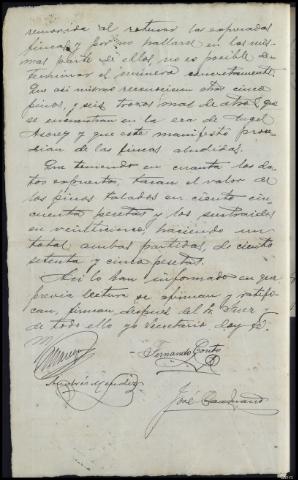 removida al retirar las expresadas
fincas, y por no hallarse en las mis-
mas parte de ellos, no es posible de-
terminar el número concretamente.
Que asi mismo reconocieron otros cinco
pinos, y seis trozos mas de otros, que
se encuentran en la era de Angel
y que este manifestó proce-
dian de las fincas aludidas.
Que teniendo en cuenta los da-
tos expuestos, tasan el valor de
los pinos talados en ciento cin-
cuenta pesetas y los sustraidos
en veinticinco, haciendo un
total ambas partidas, de ciento
setenta y cinco pesetas.
Asi lo han informado en que
previa lectura se afirman y ratifi-
can, firman despues del Sr Juez
de todo ello yo Secretario doy fé.
Fernando
Andrés Mendez
José